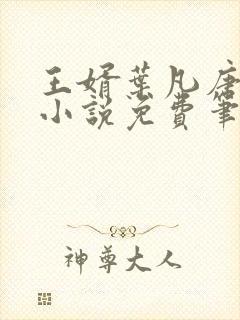 王婿葉凡唐
小說免費筆
神尊大人